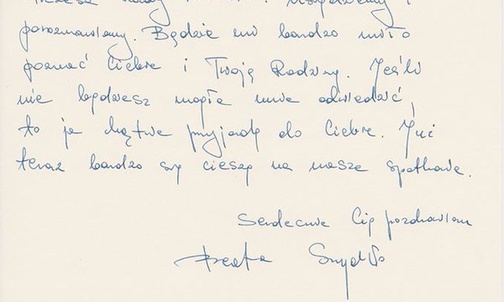 i
porozmawiamy. Będzie mi bardzo miło
poznać Ciebie i Twoją Rodzinę. Jeśli
nie będziesz mogła mnie odwiedzić,
to ja chętnie przyjadę do Ciebie. Już
teraz bardzo się cieszę na nasze spotkanie.
Serdecznie Cię pozdrawiam
Beata Szydło